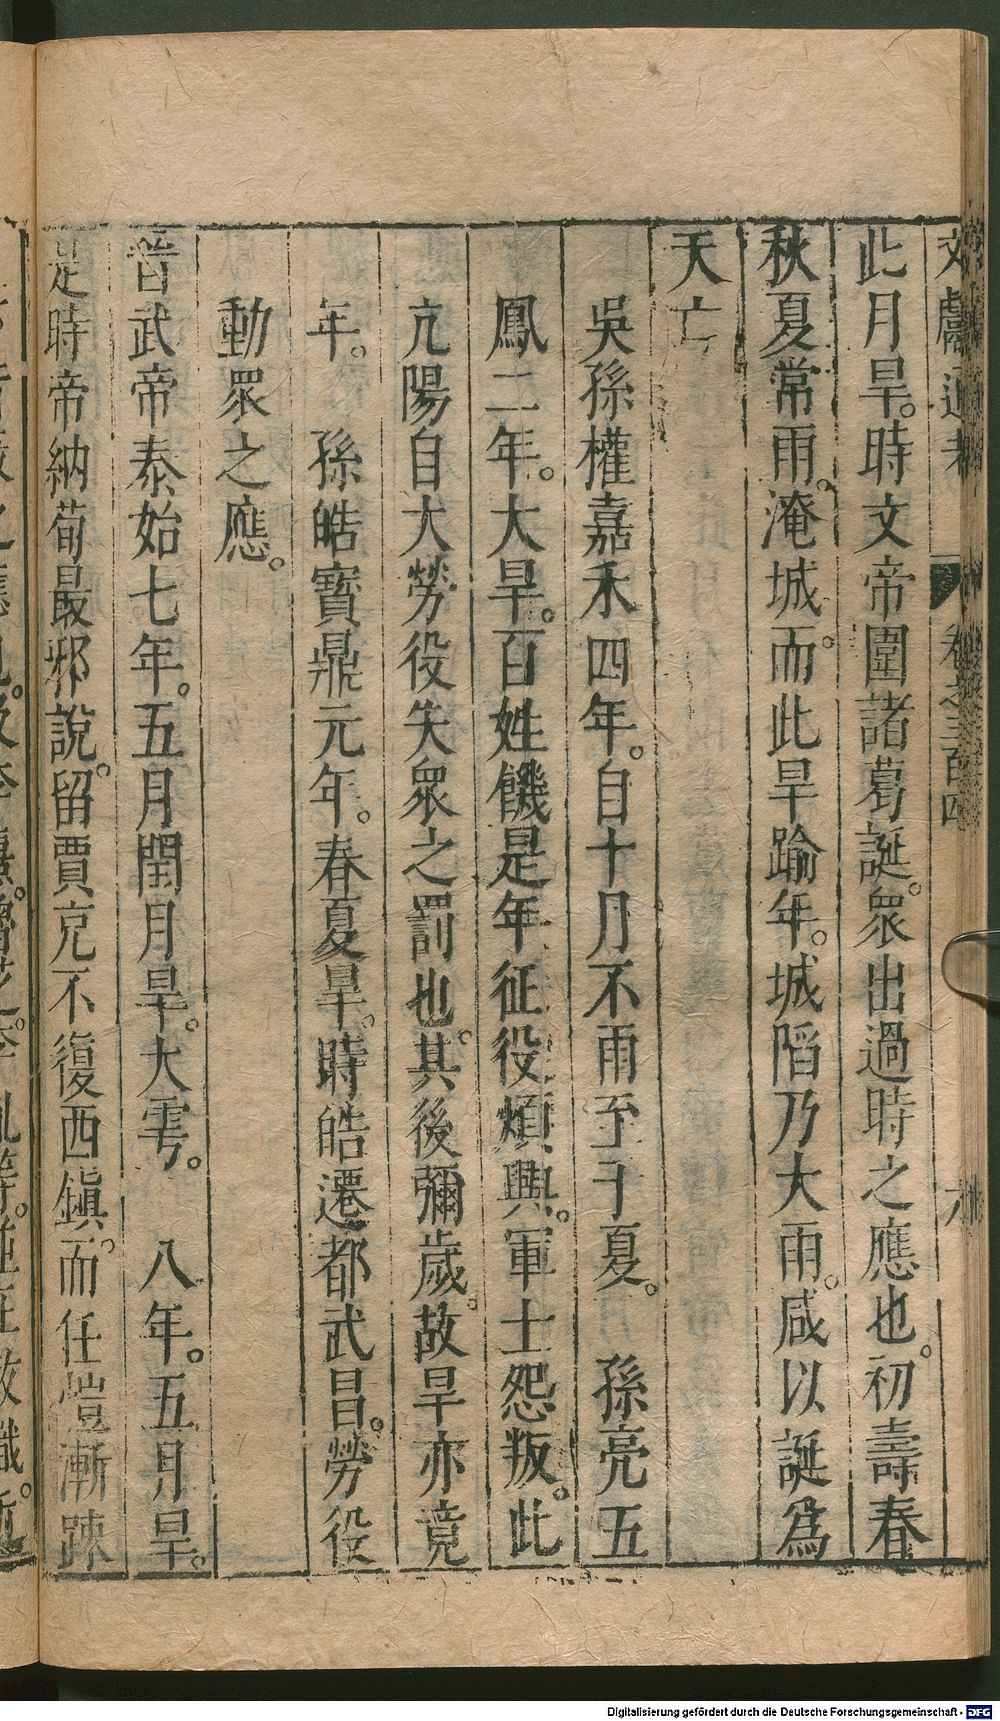 文獻通考 卷之三百四 六
此月旱。時文帝圍諸葛誕。眾出過時之應也。初壽春
秋夏常雨。淹城。而此旱踰年。城陷乃大雨。咸以誕爲
天亡
吳孫權嘉禾四年。自十月不雨至于夏。 孫亮五
鳳二年。大旱。百姓饑是年征役煩興。軍士怨叛。此
亢陽自大勞役失眾之罰也。其後彌歲。故旱亦竟
年。 孫皓寶鼎元年。春夏旱。時皓遷都武昌。勞役
動眾之應。
晉武帝泰始七年。五月閏月旱。大雩。 八年。五月旱。
是時帝納荀最邪說。留賈充不復西鎮。而任愷漸踈
Digitalisierung gefördert durch die Deutsche Forschungsgemeinschaft - DFG